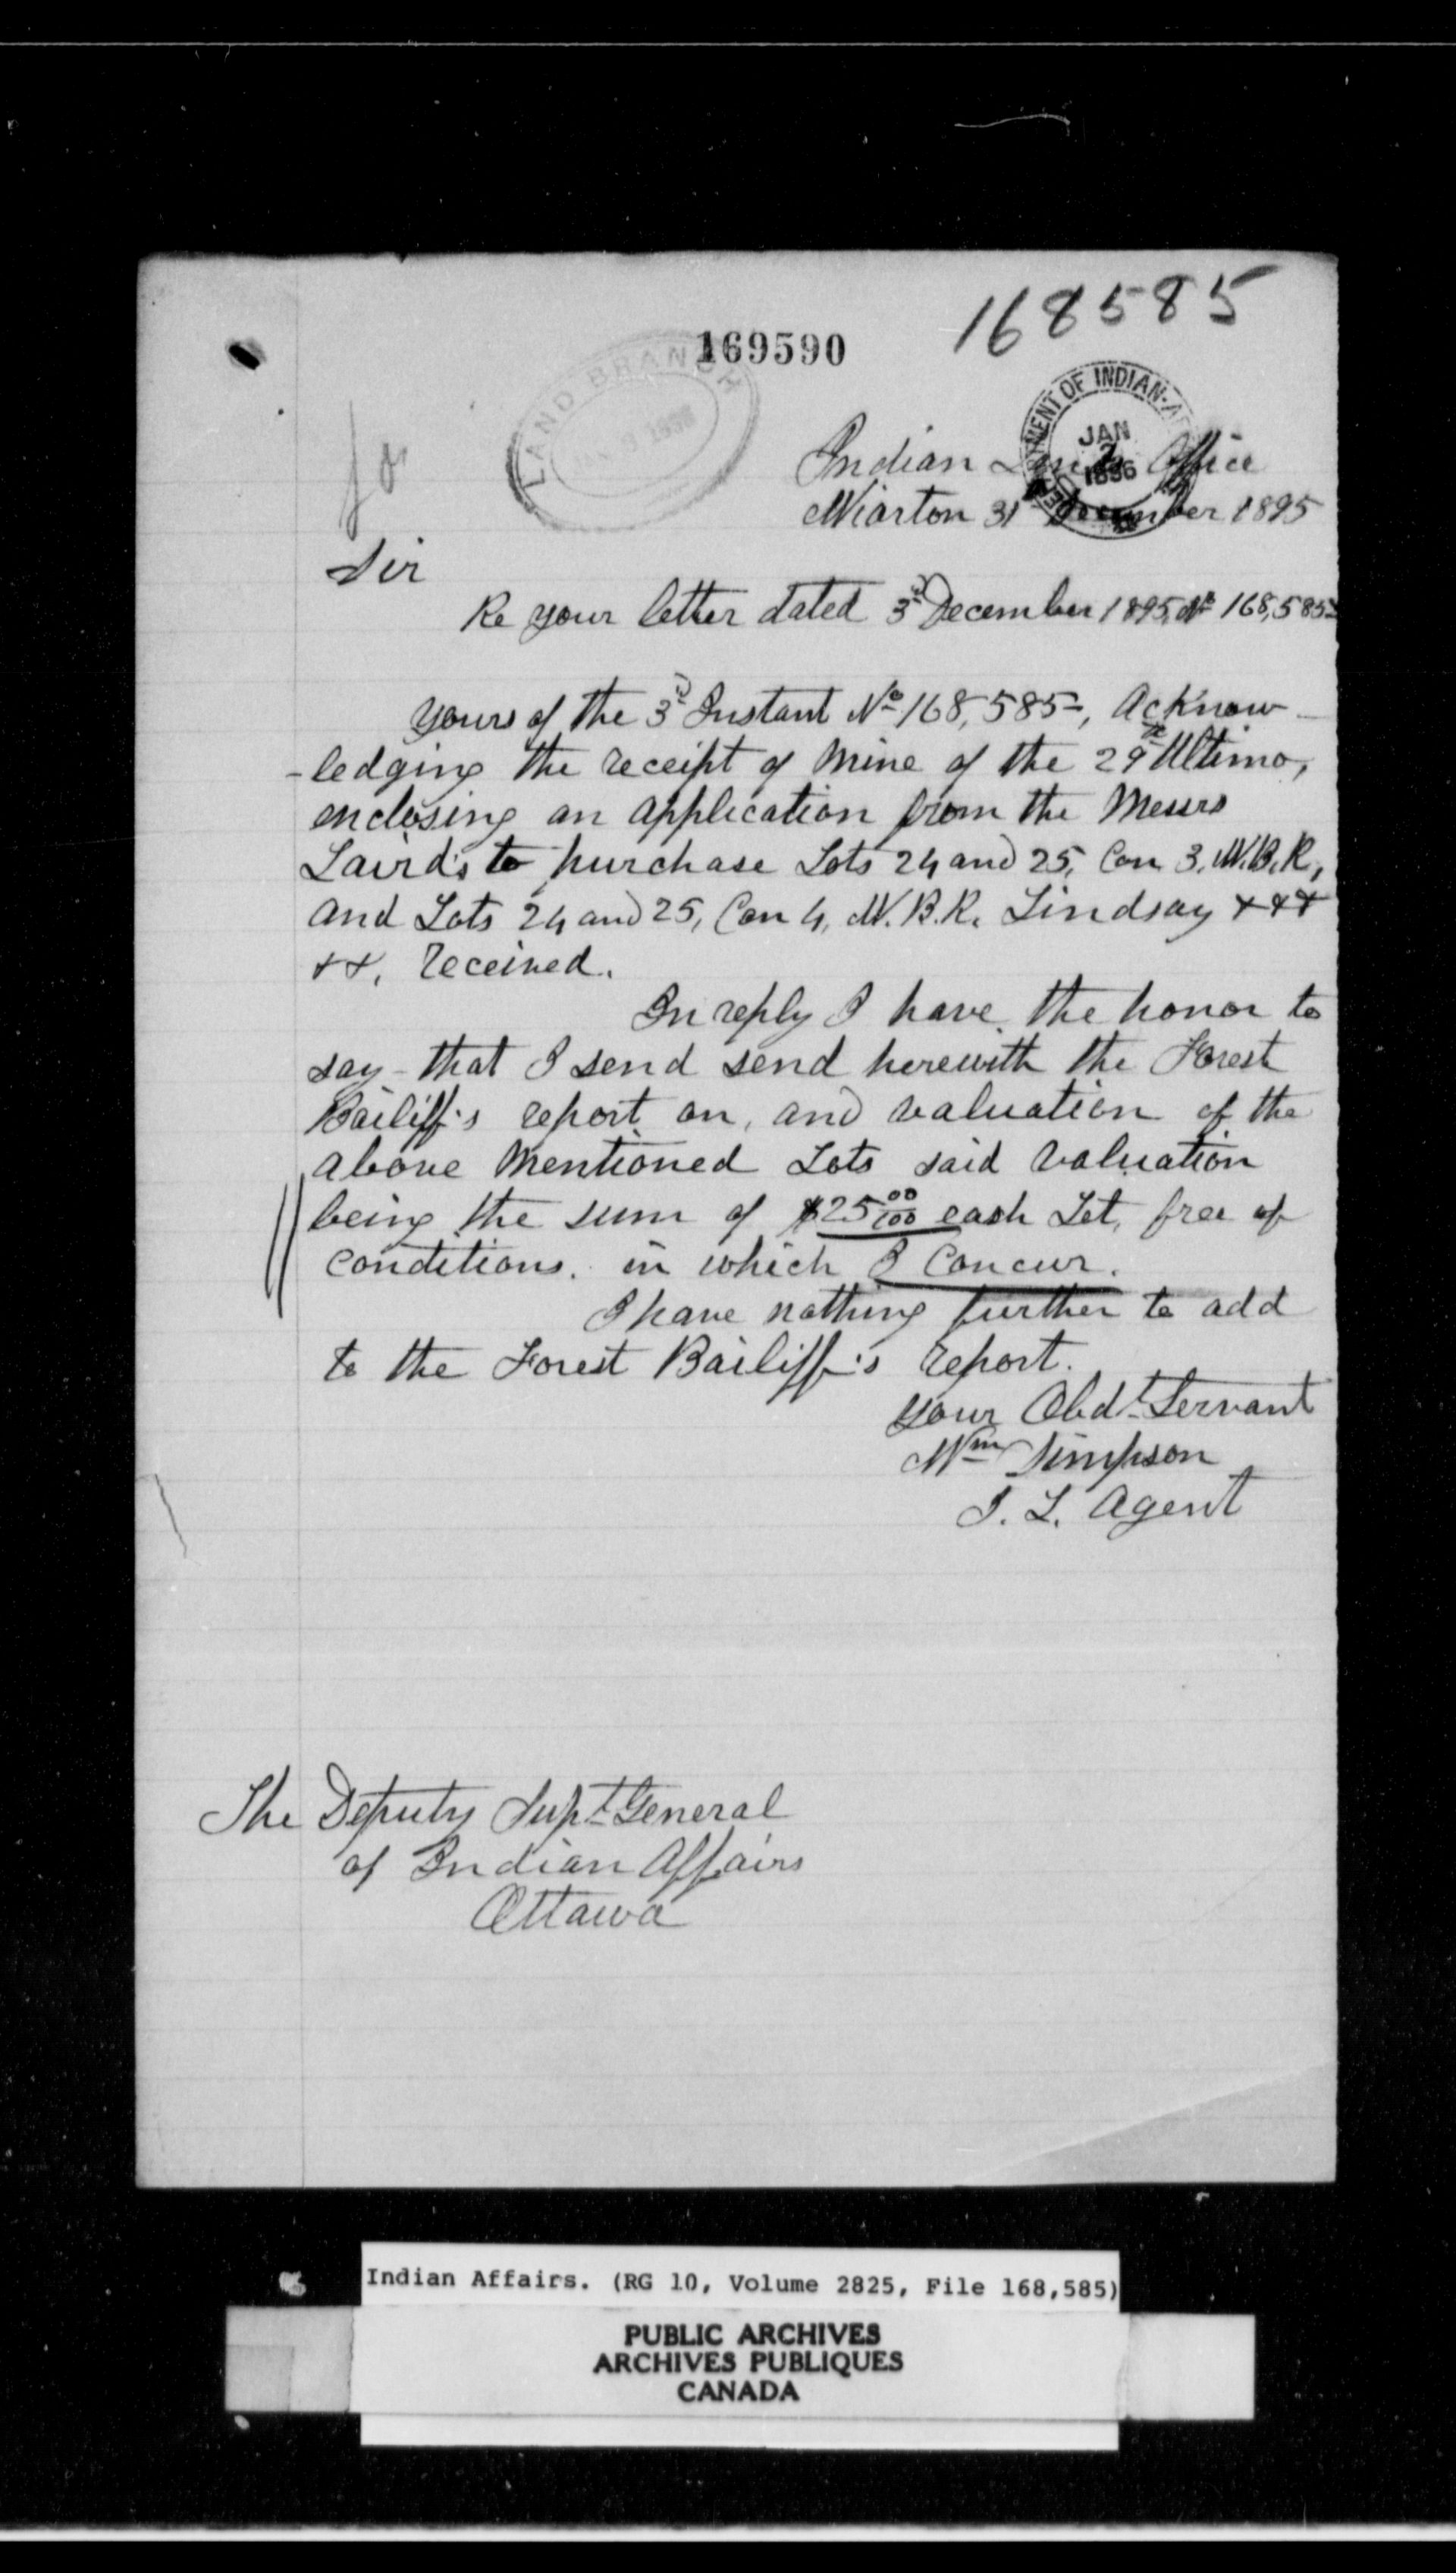 168585
169590
LAND BRANCH
DEPARTMENT OF INDIAN
JAN
2
1896
Indian Lands Office
Wiarton 31st December 1895
Sir
Re your letter dated 3rd December 1895, No 168,585
Yours of the 3d Instant No 168,585, Acknow-
-ledging the receipt of mine of the 29th Ultimo,
enclosing an application from the Messrs
Laird's to purchase Lots 24 and 25, Con 3. W.B.R,
and Lots 24 and 25, Con 4, W.B.R. Lindsay +++
++, received.
In reply I have the honor to
say - that I send send herewith the Forest
Bailiff's report on, and valuation of the
above mentioned Lots said valuation
being the sum of $25 00/100 each Lot, free of
conditions. in which I Concur.
I have nothing further to add
to the Forest Bailiff's report.
your Obdt Servant
Wm Simpson
I. L. Agent
The Deputy Supt General
of Indian Affairs
Ottawa
Indian Affairs. (RG 10, Volume 2825, File 168,585)
PUBLIC ARCHIVES
ARCHIVES PUBLIQUES
CANADA